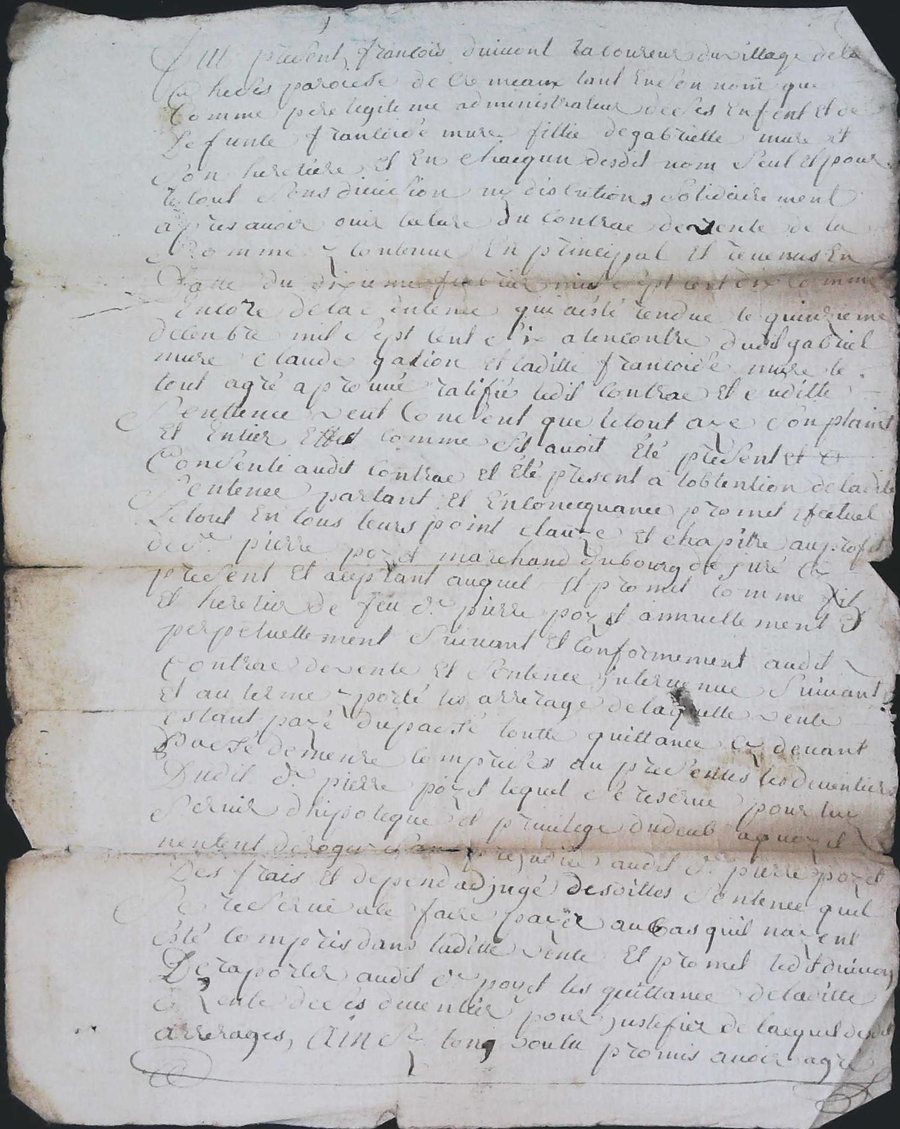 Fut présent francois duivont laboureur du village de la
Cheles paroisse de Cremeaux tant En son nom que
Comme pere legitime administrateur de ses Enfent Et de
Defunte francoise mure fillie de gabrielle mure et
Son heretiere Et En chacqun desdit nom Seul Et pour
le tout Sans division ny discution, Solidairement
après avoir ouir lecture du Contrac de rente de la
Somme y contenue En principal Et revenus En
Datte du dixieme fevrier mil sept cent dix comme
Encore de la Sentence qui a esté rendue le quinzieme
decenbre mil Sept Cent a lencontre dudit gabriel
mure Claude gation Et laditte francoise mure le
tout agré aprouué ratiffié ledit Contrac Et laditte
Sentence veut Consent que le tout aye Son plains
Et Entier Effet Comme Sil avoit Été présent Et
Consenti audit Contrac Et Été present a lobtention de laditte
Sentence partant Et En Concequance promet Efectuer
Le tout En tous leurs point clauze Et chapitre au profit
de Sr. pierre poyet marchand du bourg de juré
présent Et aceptant auquel Il promet Comme fils
Et heretier de feu Sr. pierre poyet annuellement Et
perpetuellement Suivant Et Conformement audit
Contrac de rente Et Sentence Intervenue Suivant
Et au terme y porté les arrerage de laquelle rente
Estant payé du passé toutte quittance Cy devant
Passé demeure Compries au presentes les
Dudit Sr. pierre poyet lequel Se reserve pour luy
Servir dhipoteque Et privilege dudeub auquel
nentent deroger Sans prejudice audit Sr. pierre poyet
Des frais Et depend adjugé desdittes Sentence quil
Se reserve de faire payer au Cas quil nayent
Esté Compris dans laditte rente Et promet ledit duivon
De raporter audit Sr. poyet les quittance de laditte
rente pour justifier de lacquit desdit
arrerages, Ainsy lon voulu promis avoir agré